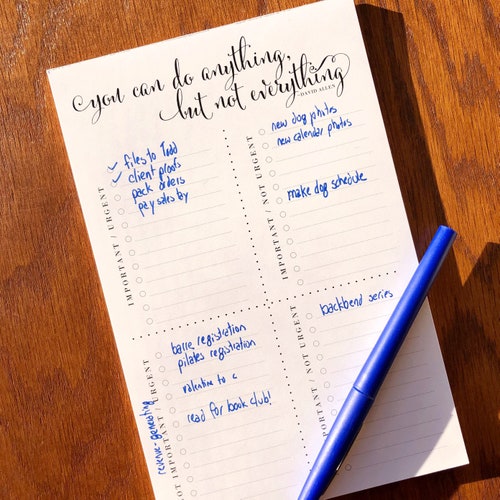 you can do anything,
but not everything
-DAVID ALLEN
IMPORTANT / URGENT
✓ files to Todd
✓ client proofs
pack orders
pay sales
IMPORTANT / NOT URGENT
new dog photos
new calendar photos
make dog schedule
NOT IMPORTANT / URGENT
revenue-generating
barre registration
pilates registration
valentine to c
read for book club!
PORTANT / NOT URGENT
backbend series